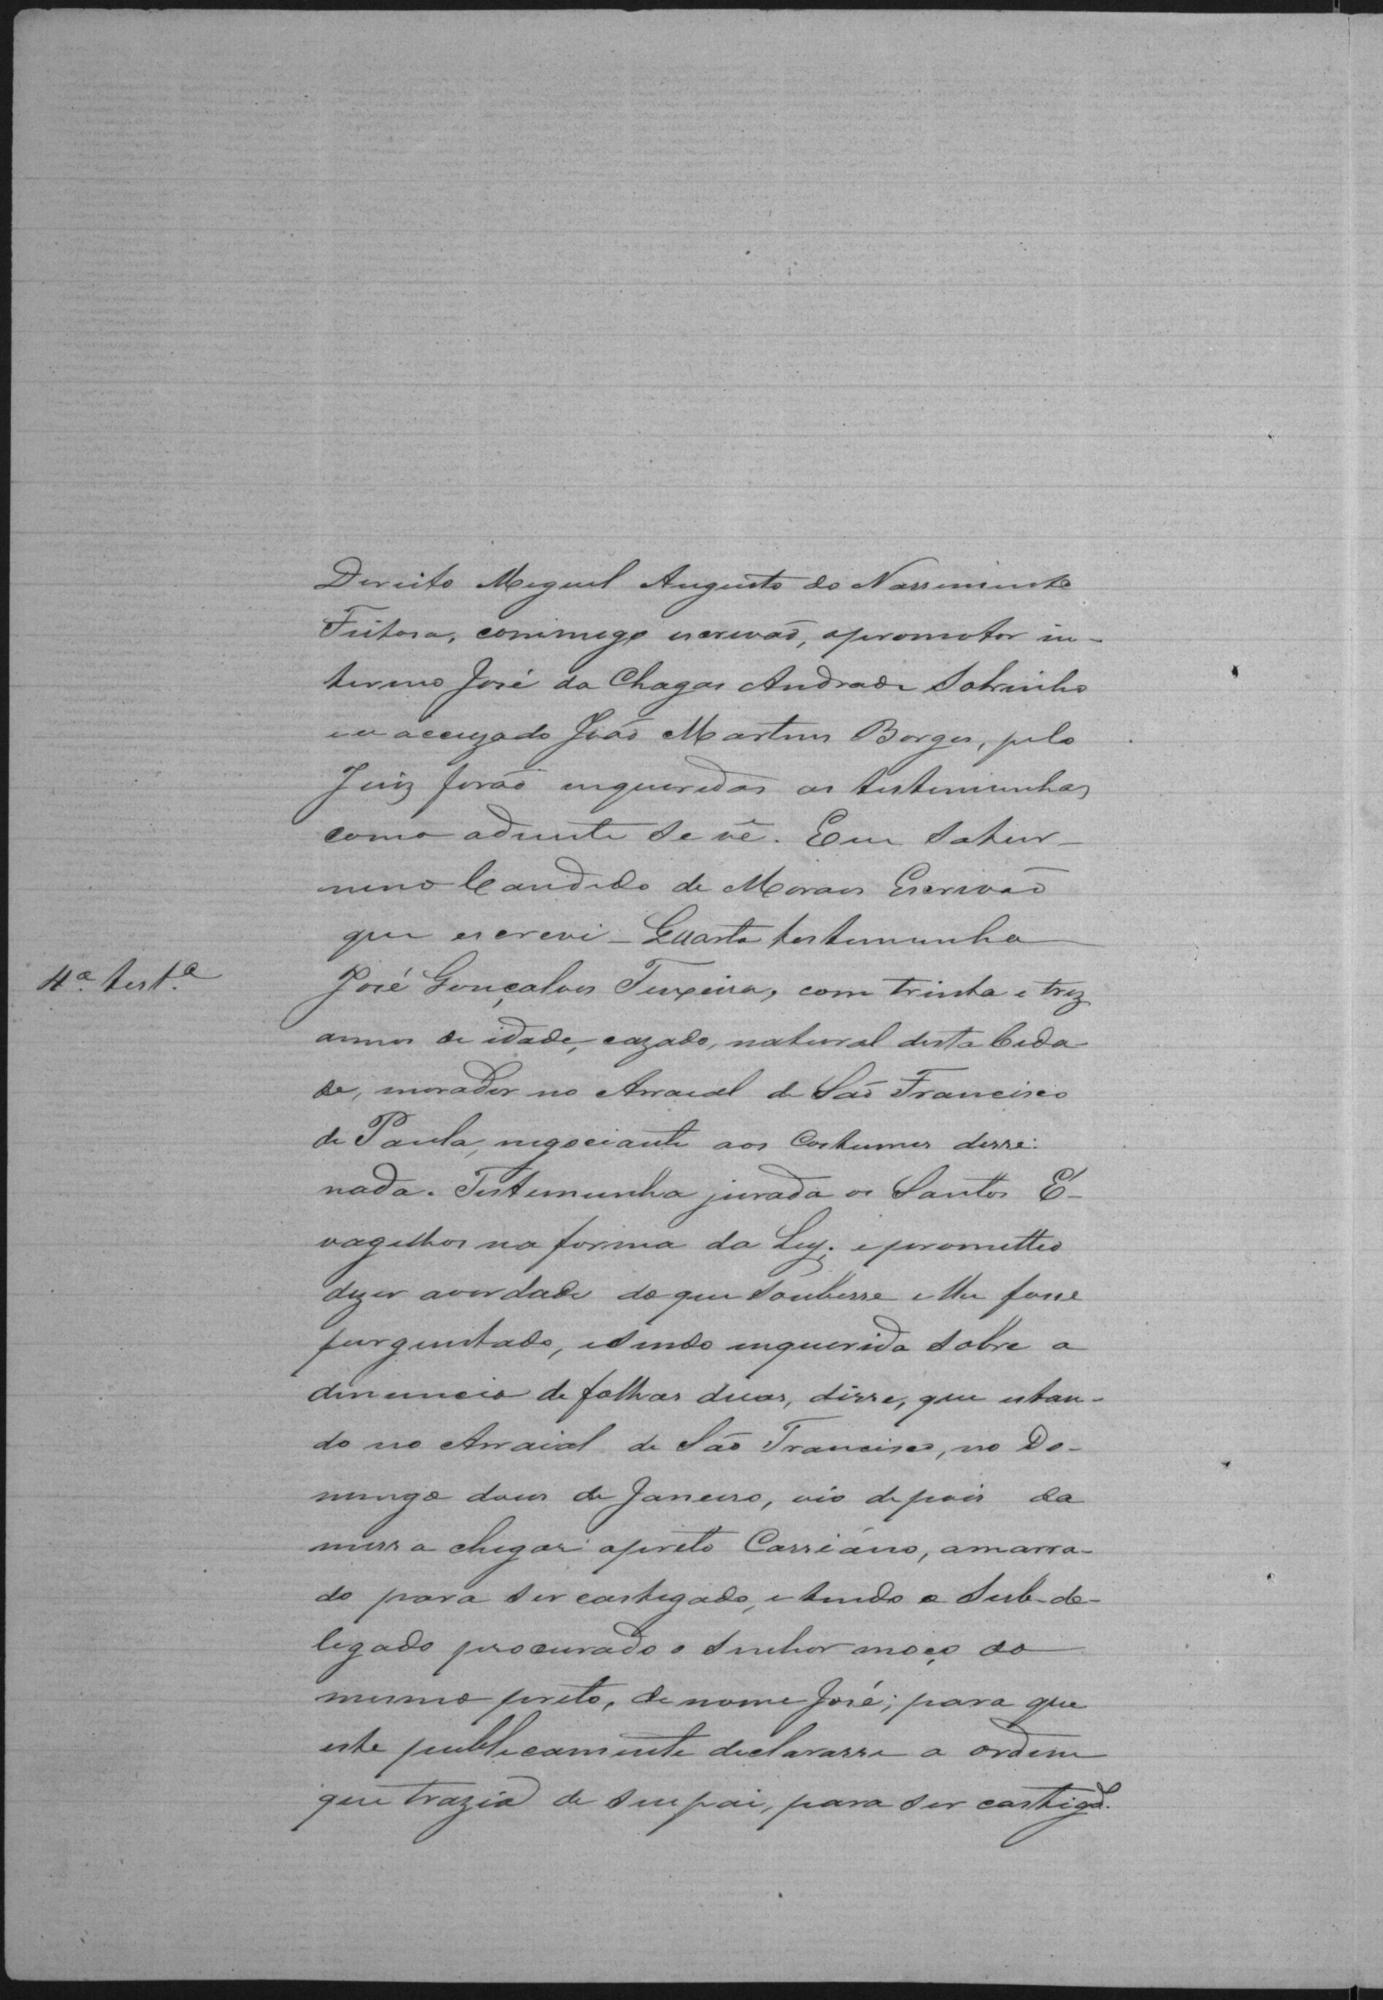 Direito Miguel Augusto do Nassimento
Feitosa, commigo escrivaõ, opromotor in-
terino José da Chagas Andrade Sobrinho
eo accuzado Joaõ Martins Borges, pelo
Juiz foraõ enqueridas as testemunhas
como adiente se vê. Eeu Satur-
nino Candido de Moraes Escrivaõ
que escrevi - Quarta testemunha
4.ª test.ª
José Gonçalves Teixeira, com trinta e trez
annos de idade, cazado, natural desta Cida
de, morador no Arraial de Saõ Francisco
de Paula, negociante aos Costumes disse:
nada. Testemunha jurada os Santos E-
vagelhos na forma da Ley, e prometteo
dizer averdade do que soubesse e lhe fosse
perguntado, esendo enquerida sobre a
denuncia de folhas duas, disse, que estan-
do no Arraial de Saõ Francisco, no Do-
mingo dous de Janeiro, vio depois da
missa chegar opreto Cassiáno, amarra-
do para ser castigado, e tendo o Sub-de-
legado procurado o senhor moço do
mesmo preto, de nome José; para que
este publicamente declarasse a ordem
que trazia de seu pai, para ser castigd.º